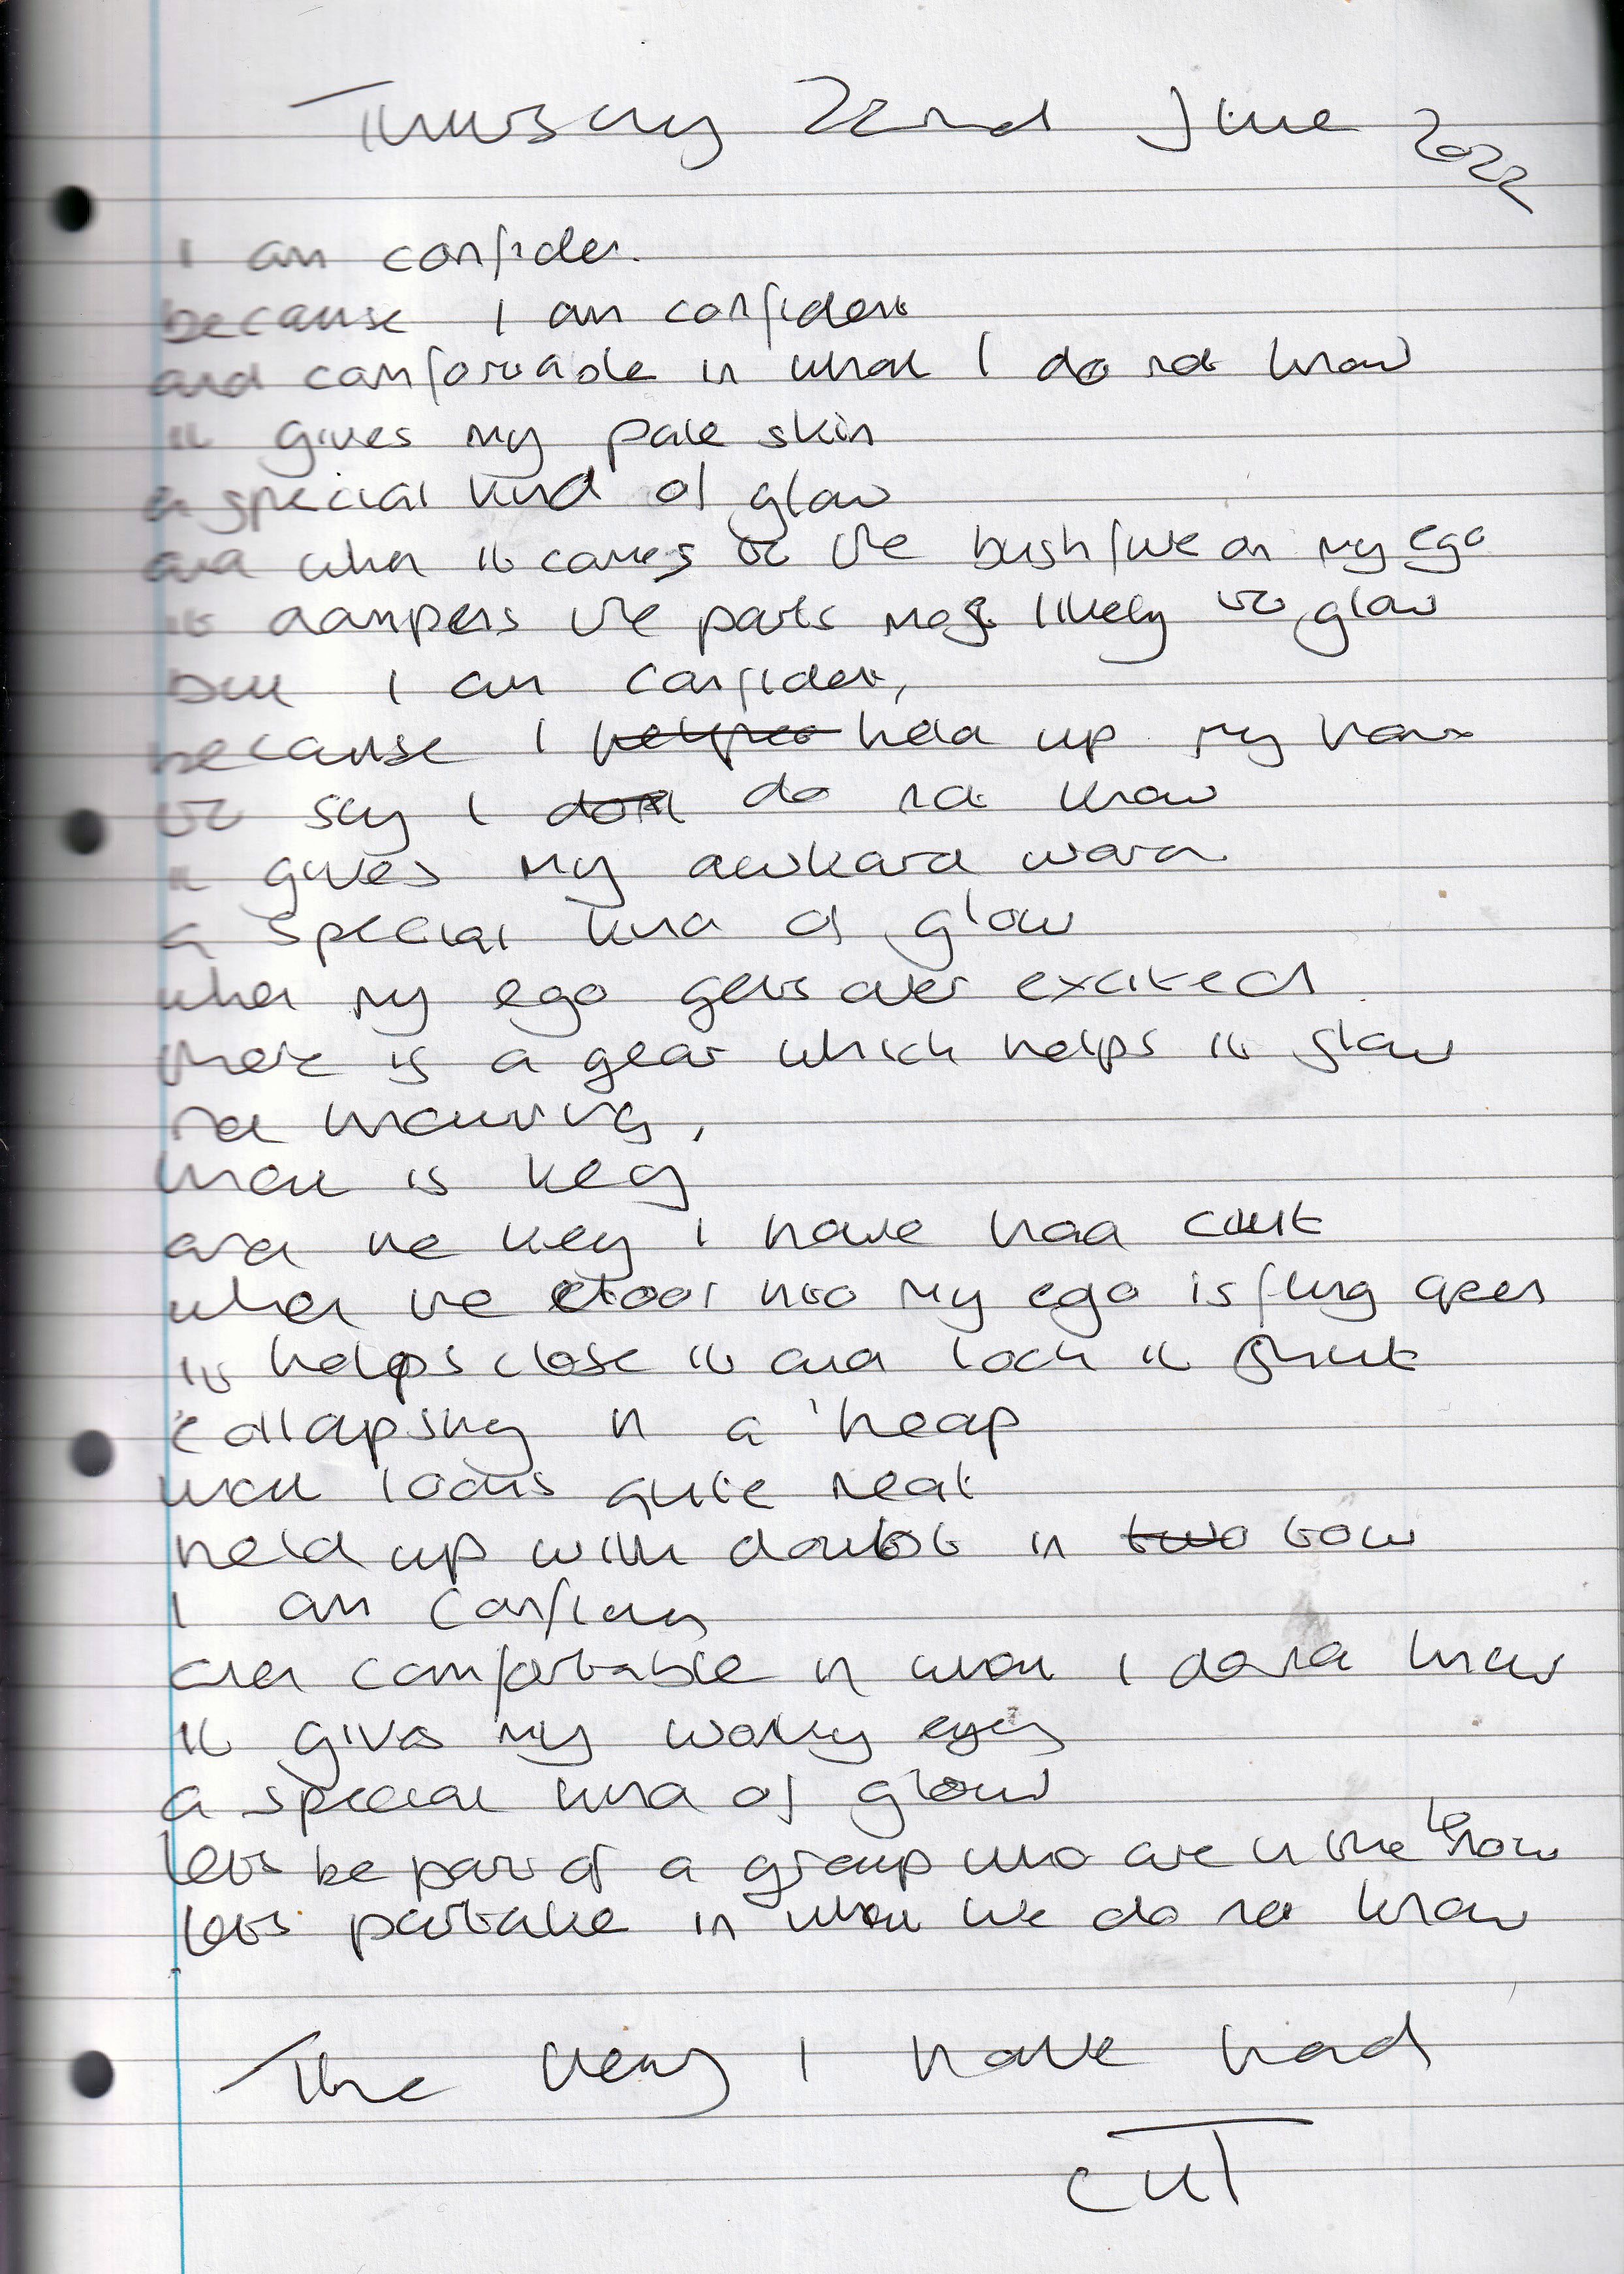 Thursday 22nd June 2022
I am confident
because I am confident
and comfortable in what I do not know
it gives my pale skin
a special kind of glow
and when it comes to the bushfire on my ego
it dampers the parts most likely to glow
but I am confident,
because I helped held up my hand
to say I dont do not know
it gives my awkard
a special kind of glow
when my ego gets over excited
there is a gear which helps it slow
not knowing,
that is key
and the key I have had cut
when the door into my ego is flung open
it helps close it and lock it shut
collapsing in a heap
which looks quite neat
held up with doubt in two tow
I am confident
and comfortable in what I do not know
it gives my wonky eyes
a special kind of glow
lets be part of a group who are in the know
lets partake in what we do not know
The key I have had
CUT